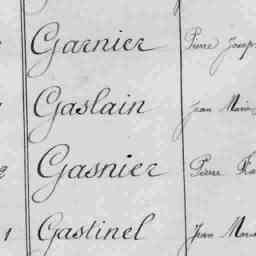 Garnier Pierre Josep
Gaslain Jean Marie
Gasnier Pierre
1 Gastinel Jean Mar